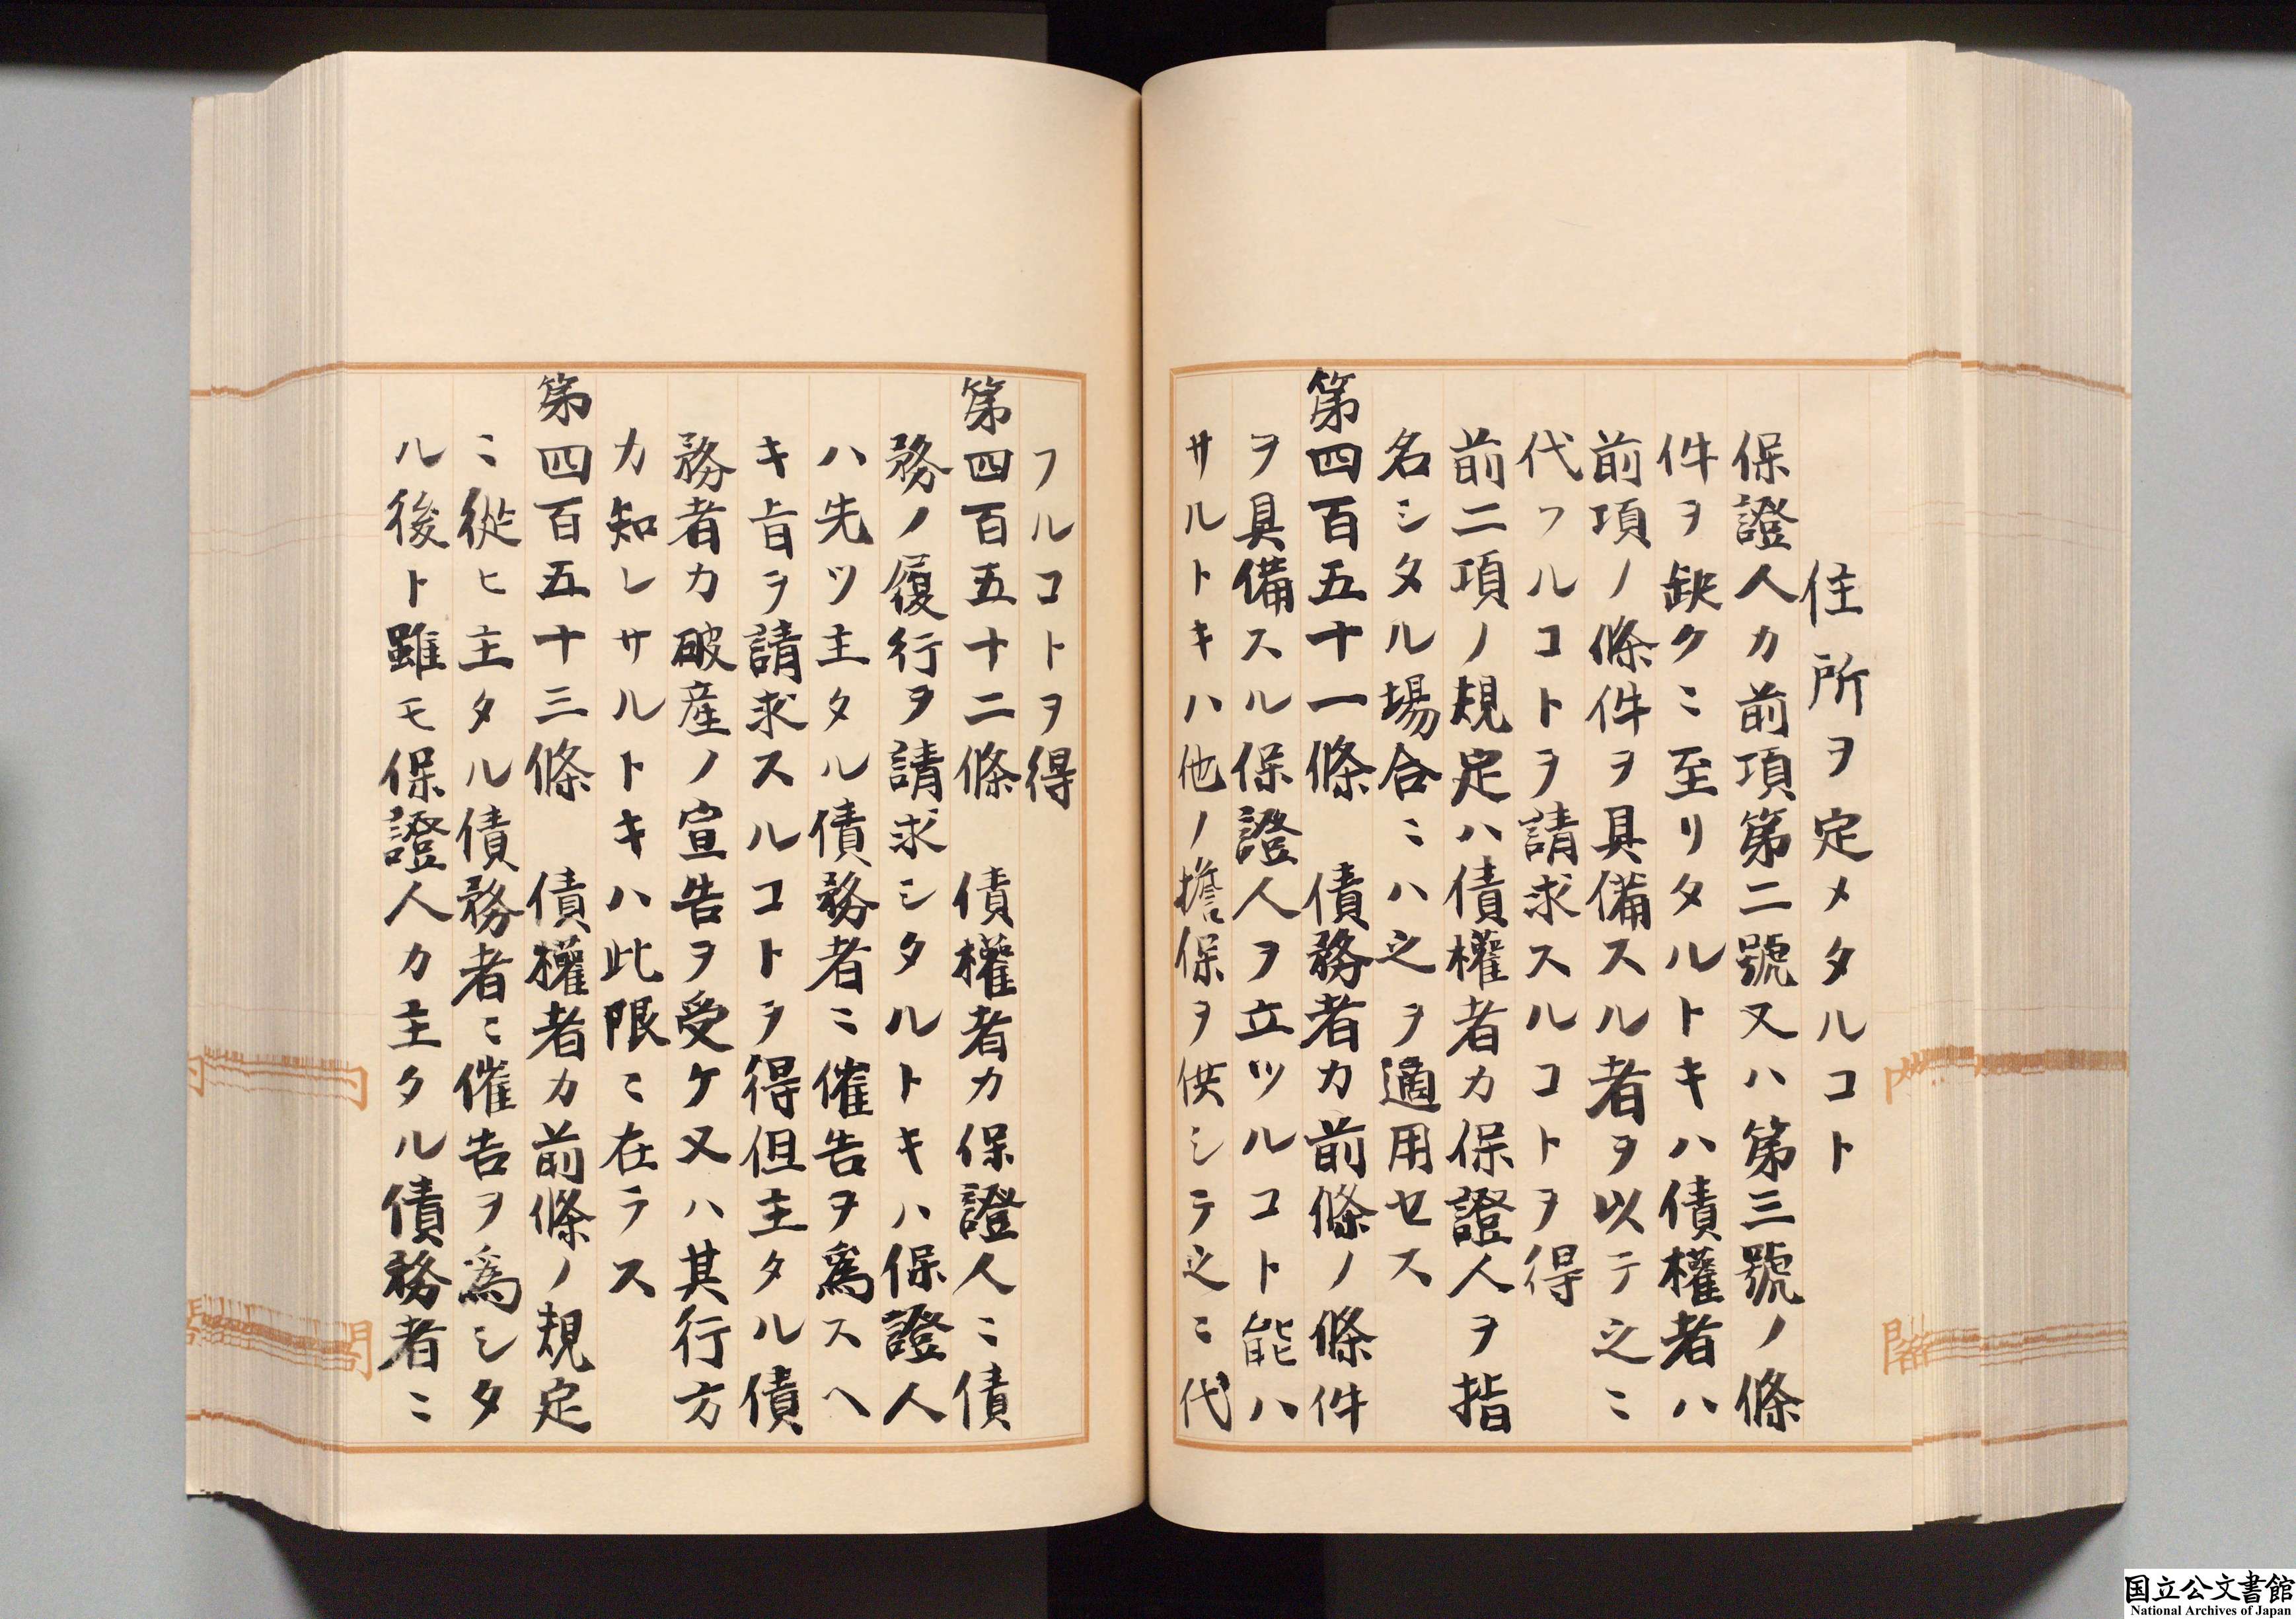 住所ヲ定メタルコト
保證人カ前項第二號又ハ第三號ノ條
件ヲ缺クニ至リタルトキハ債權者ハ
前項ノ條件ヲ具備スル者ヲ以テ之ニ
代フルコトヲ請求スルコトヲ得
前二項ノ規定ハ債權者カ保證人ヲ指
名シタル場合ニハ之ヲ適用セス
第四百五十一條 債務者カ前條ノ條件
ヲ具備スル保證人ヲ立ツルコト能ハ
サルトキハ他ノ擔保ヲ供シテ之ニ代
フルコトヲ得
第四百五十二條 債權者カ保證人ニ債
務ノ履行ヲ請求シタルトキハ保證人
ハ先ツ主タル債務者ニ催告ヲ爲スヘ
キ旨ヲ請求スルコトヲ得但主タル債
務者カ破産ノ宣告ヲ受ケ又ハ其行方
カ知レサルトキハ此限ニ在ラス
第四百五十三條 債權者カ前條ノ規定
ニ從ヒ主タル債務者ニ催告ヲ爲シタ
ル後ト雖モ保證人カ主タル債務者ニ
国立公文書館
National Archives of Japan